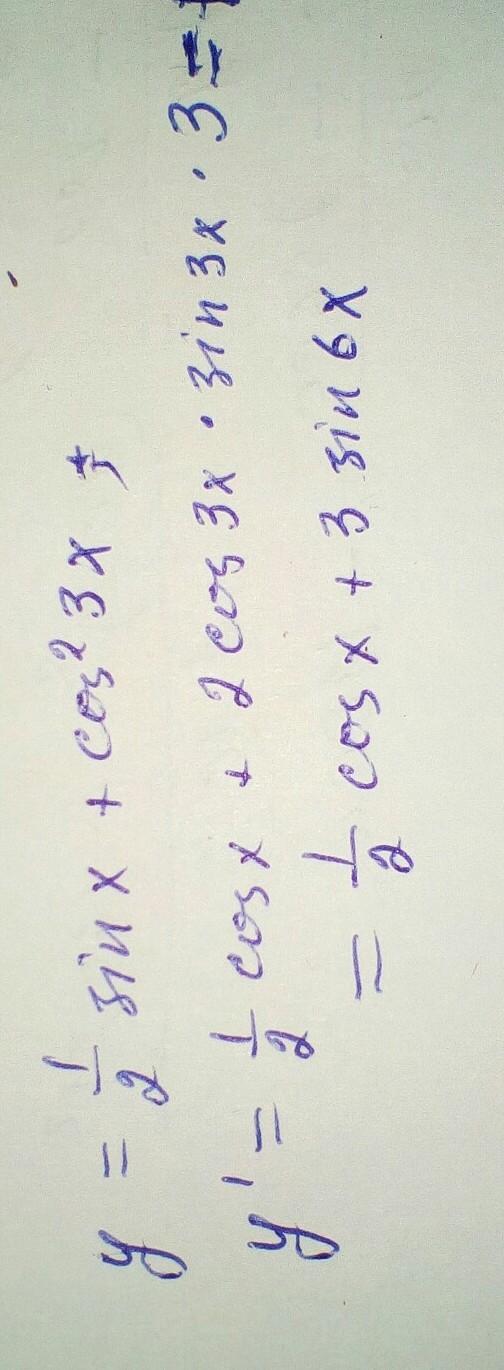 y = 1/2 sin x + cos² 3x
y' = 1/2 cos x + 2 cos 3x · sin 3x · 3 =
= 1/2 cos x + 3 sin 6x